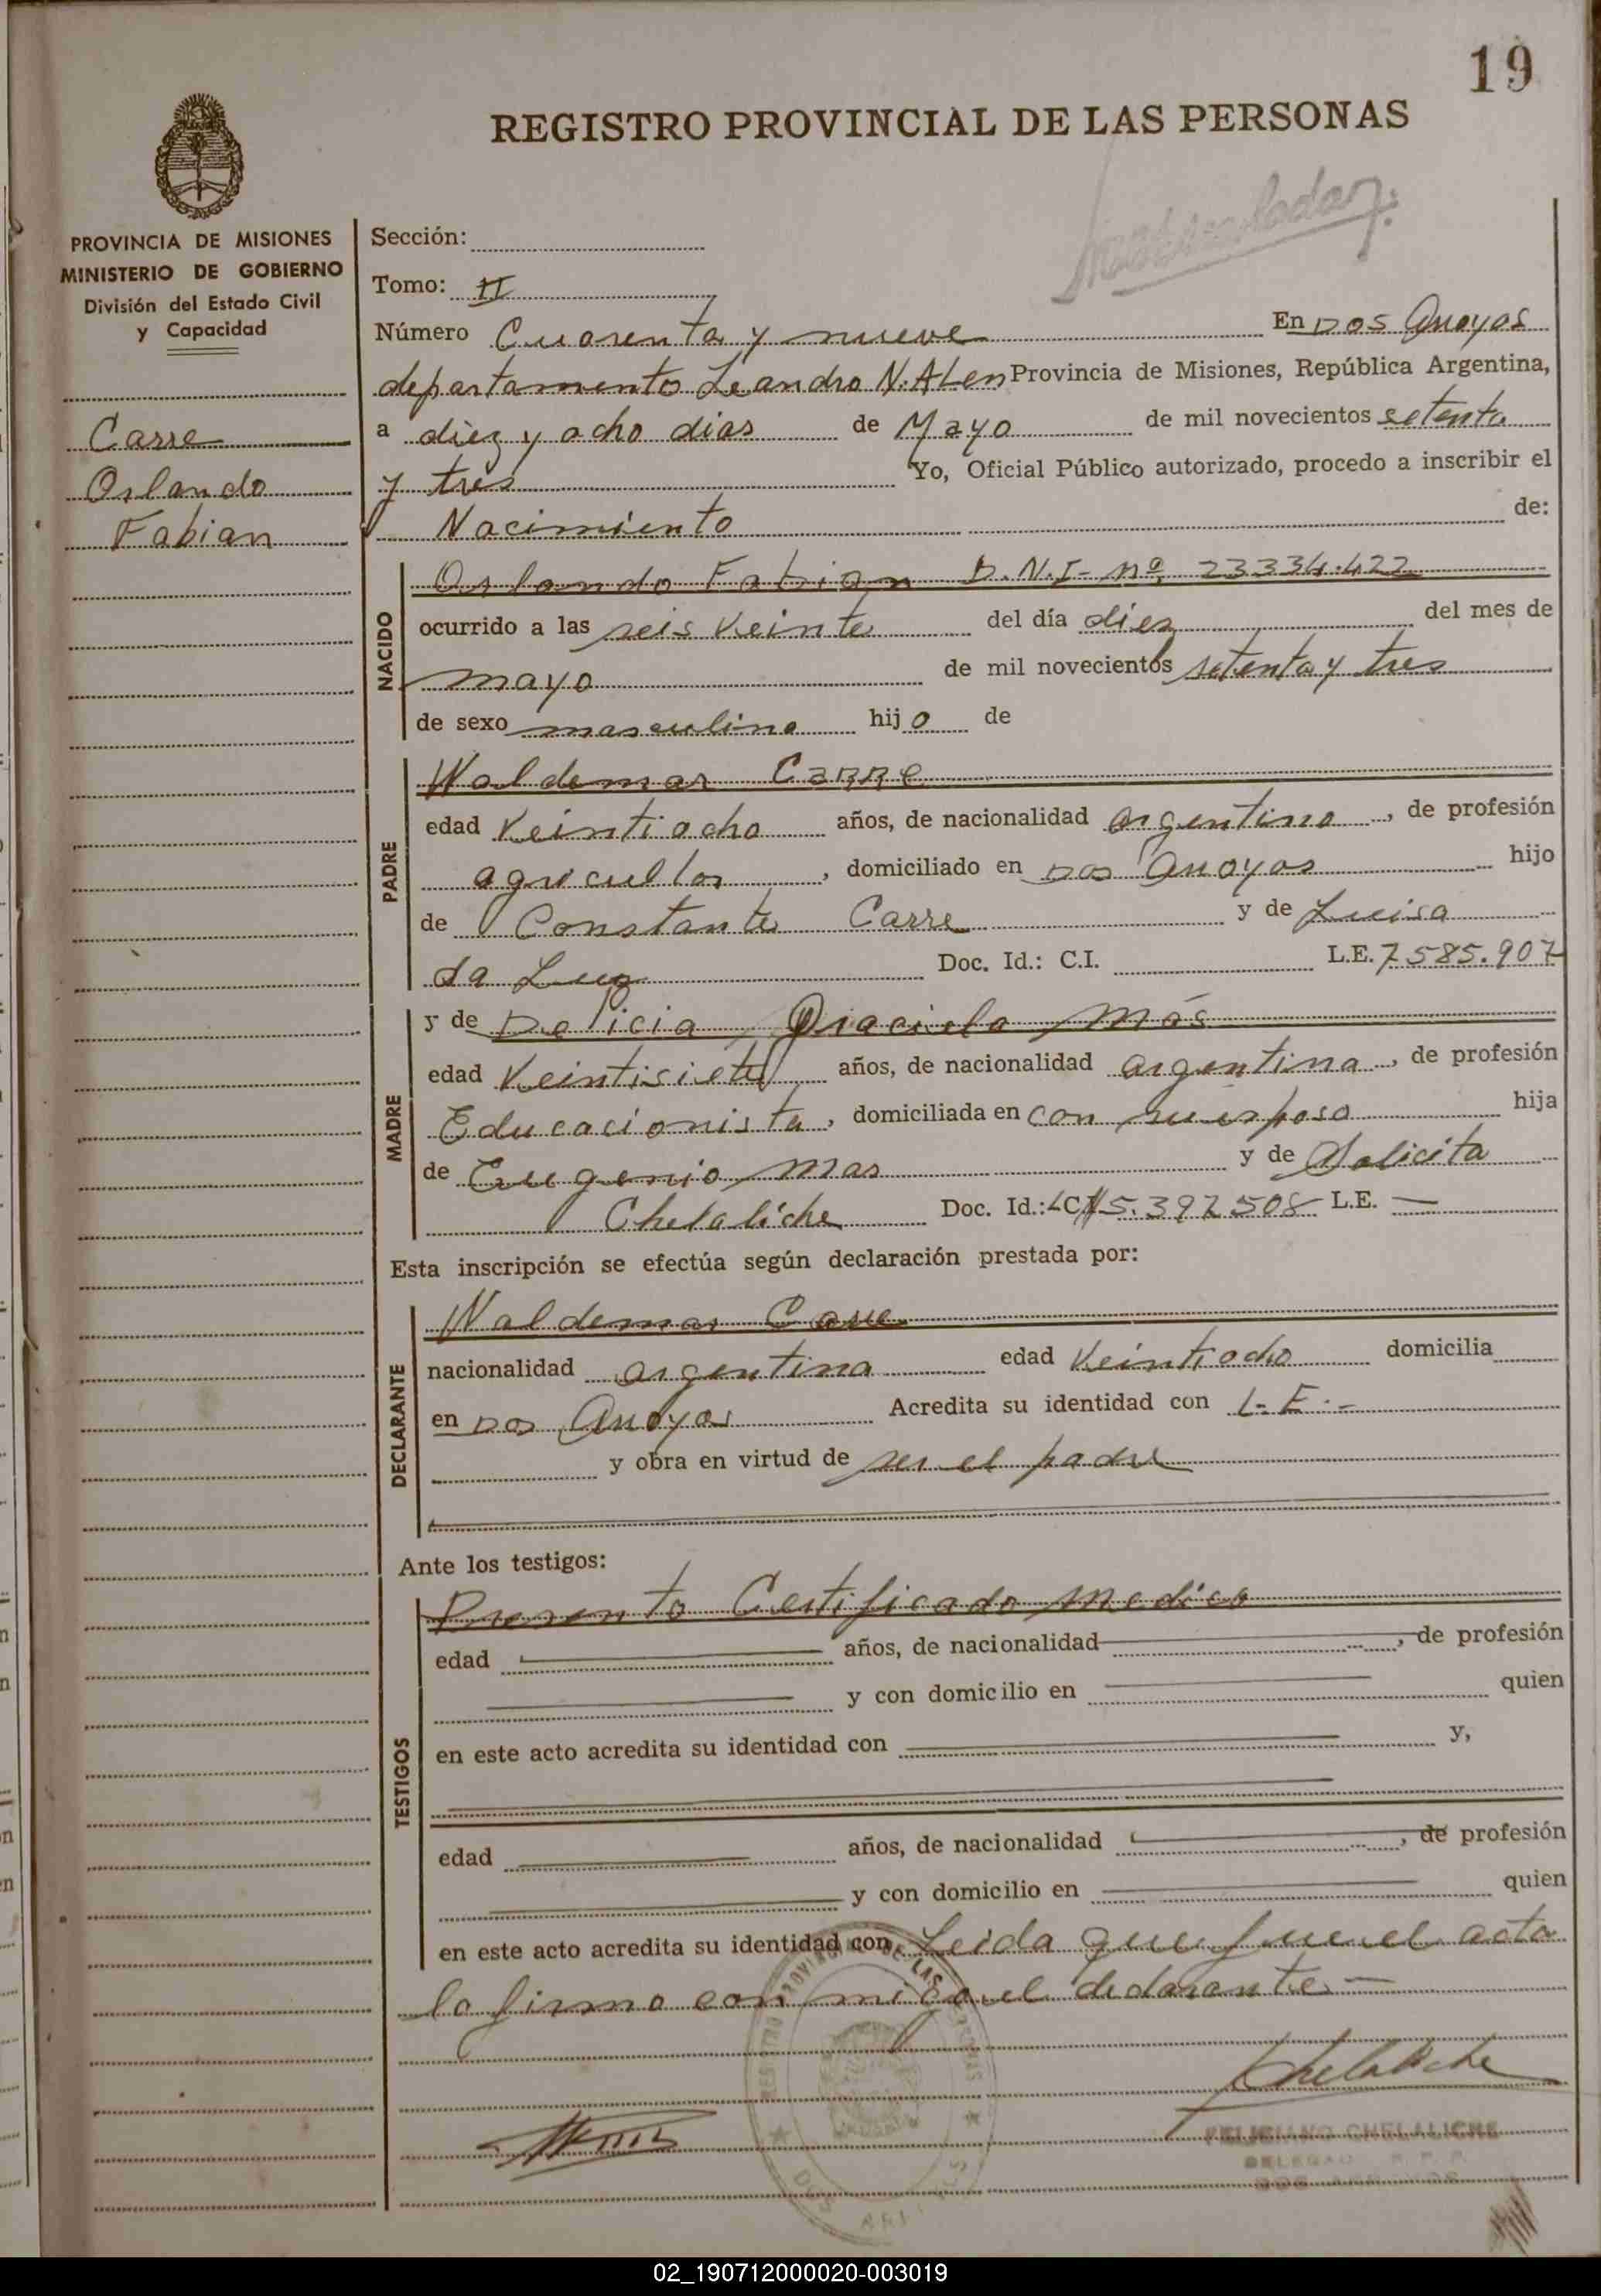 19
REGISTRO PROVINCIAL DE LAS PERSONAS
PROVINCIA DE MISIONES
MINISTERIO DE GOBIERNO
División del Estado Civil
y Capacidad
Carre
Orlando
Fabian
Sección:
Tomo: II
Número Cuarenta y nueve En Dos Arroyos
departamento Leandro N. ALen Provincia de Misiones, República Argentina,
a diez y ocho dias de Mayo de mil novecientos setenta
y tres Yo, Oficial Público autorizado, procedo a inscribir el
Nacimiento de:
NACIDO
Orlando Fabian D.N.I- nº 23334.422
ocurrido a las seis veinte del día diez del mes de
mayo de mil novecientos setenta y tres
de sexo masculino hijo de
PADRE
Waldemar Carre
edad veintiocho años, de nacionalidad argentino, de profesión
agricultor, domiciliado en Dos Arroyos hijo
de Constante Carre y de Luisa
da Luz Doc. Id.: C.I. L.E. 7585.907
MADRE
y de Delicia Graciela Más
edad veintisiete años, de nacionalidad argentina, de profesión
Educacionista, domiciliada en con su esposo hija
de Eugenio Mas y de
Chelaliche Doc. Id.: LC Nº 5.392.508 L.E. —
Esta inscripción se efectúa según declaración prestada por:
DECLARANTE
Waldemar Carre
nacionalidad argentina edad veintiocho domicilia
en Dos Arroyos Acredita su identidad con L.E.-
y obra en virtud de ser el padre
Ante los testigos:
TESTIGOS
Presento Certificado medico
edad años, de nacionalidad , de profesión
y con domicilio en quien
en este acto acredita su identidad con y,
edad años, de nacionalidad , de profesión
y con domicilio en quien
en este acto acredita su identidad con Leida que fue el acta
la firma conmigo el declarante —
Chelaliche
FELICIANO CHELALICHE
02_190712000020-003019